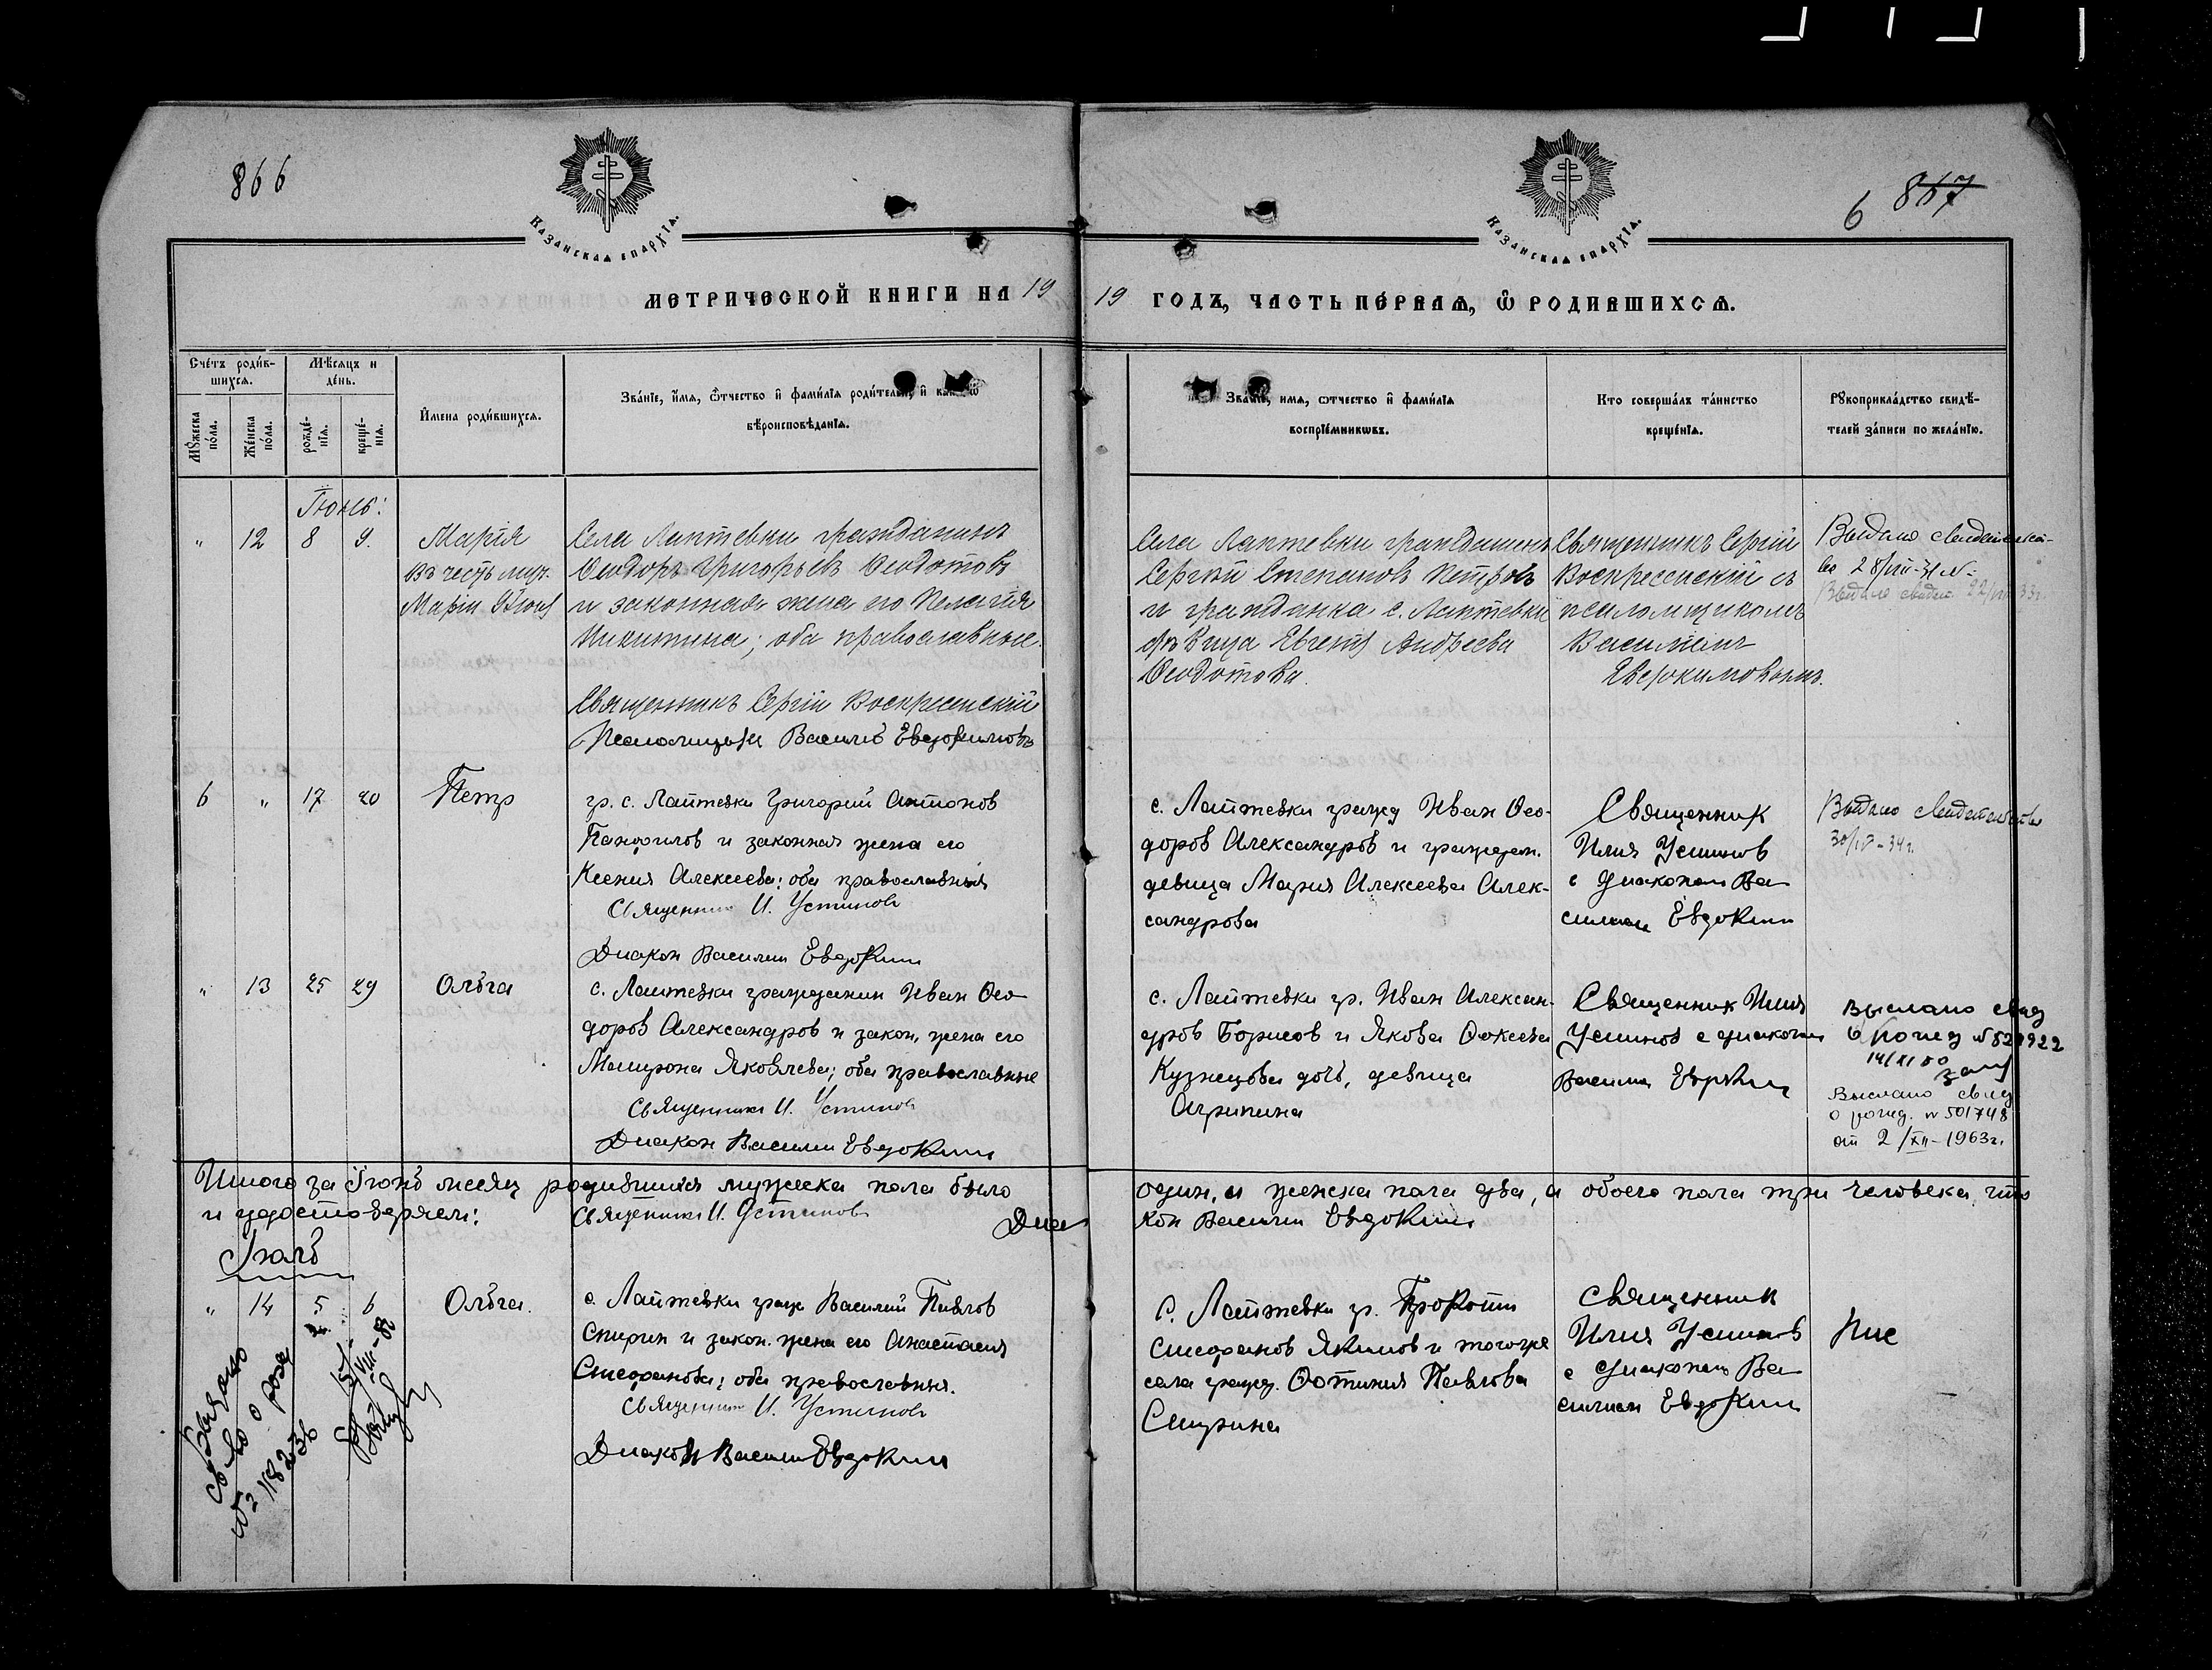 866
Казанская епархїа.
Казанская епархїа.
6 867
МЕТРИЧЕСКОЙ КНИГИ НА 19
19 ГОДЪ, ЧАСТЬ ПЕРВАЯ, Ѿ РОДИВШИХСЯ.
Счéтъ роди́в-
шихся.
Мѣсяцъ и
дéнь.
Мꙋжеска
по́ла.
Жéнска
по́ла.
рождé-
нїя.
крещé-
нїя.
И́мена роди́вшихся.
Звáнїе, и́мя, ѻ҆тчество и҆ фами́лїя роди́телей, и҆
вѣроисповѣ́данїя.
Звáнїе, имя, ѻтчество и҆ фами́лїя
воспрїéмникѡвъ.
Кто соверша́лъ та́инство
крещéнїя.
Рꙋкоприкла́дство свидѣ́-
телей за́писи по жела́нїю.
Іюнь:
" 12 8 9. Марія
въ честь мир.
Маріи
Села Лаптевки гражданинъ
Ѳеодоръ Григорьевъ Ѳеодотовъ
и законная жена его Пелагія
Никитина; оба православные.
Священникъ Сергій Воскресенскій
Псаломщикъ Василій Евдокимовъ
Села Лаптевки гражданинъ
Сергѣй Степановъ Петровъ
и гражданка с. Лаптевки
дѣвица Андреева
Ѳеодотова.
Священникъ Сергій
Воскресенскій съ
псаломщикомъ
Василіемъ
Евдокимовымъ.
Выдано свидетельст-
во 28/VIII-31
Выдано свидет. 22/VII 33г.
6 " 17 20 Петр
гр. с. Лаптевки Григорий Антонов
Панфилов и законная жена его
Ксения Алексеева; оба православныя
Священник И. Устинов
Диакон Василий Евдоким
с. Лаптевки гражд Иван Ѳео-
доров Александров и гражден.
девица Мария Алексеева Алек-
сандрова
Священник
Илия Устинов
с диаконом Ва-
силием Евдоким
Выдано свидетельство
30/IV-34г.
" 13 25 29 Ольга
с. Лаптевки гражданин Иван Ѳео-
доров Александров и закон. жена его
Матрона Яковлева; оба православные
Священник И. Устинов
Диакон Василий Евдоким
с. Лаптевки гр. Иван Алексан-
дров Борисов и Якова
Кузнецова дочь, девица
Агрипина
Священник Илия
Устинов с диаконом
Василием Евдоким
Выслано свид
о рожд №521922
14/XI 50
Выслано свид
о рожд. № 501748
от 2/XII-1963г.
Итого за Іюнь месяц родившихся мужеска пола было
один, а женска пола два, а обоего пола три человека, что
и удостоверяем: Священник И. Устинов Диа
кон Василий Евдоким
Іюль
" 14 5 6 Ольга.
с. Лаптевки гражд Василий Павлов
Спирин и закон. жена его Анастасия
Стефанова; оба православныя.
Священник И. Устинов
Диакон Василий Евдоким
С. Лаптевки гр. Прокопий
Стефанов Якимов и тогоже
села гражд. Фотиния Павлова
Спирина
Священник
Илия Устинов
с диаконом Ва-
силием Евдоким
Выдано
св-во о рожд